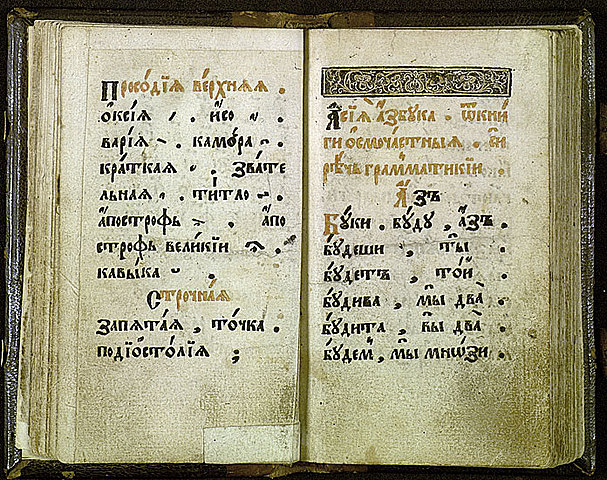 Просо́дїѧ ве́рхнѧѧ .
ѻ҆ксі́ѧ . и҆со .
варі́ѧ . камо́ра .
кра́ткаѧ . зва́те
льнаѧ . ти́тло .
а҆построфь . а҆по
строфь вели́кїи .
кавы́ка .
Стро́чнаѧ
запѧта́ѧ , то́чка .
подїѡсто́лїѧ ;
А҆сїѧ̀ а҆збꙋка . ѿкни́
ги ѻ҆смоча́стныѧ . си
рѣ́чь грамматикі́и .
А҆́зъ
Бꙋ́ки . бꙋ́дꙋ , а҆́зъ .
бꙋ́деши , ты̀ .
бꙋ́детъ , то́й .
бꙋ́дива , мы̀ два̀ .
бꙋ́дита , вы̀ два̀ .
бꙋ́демъ , мы̀ мнѡ́зи .